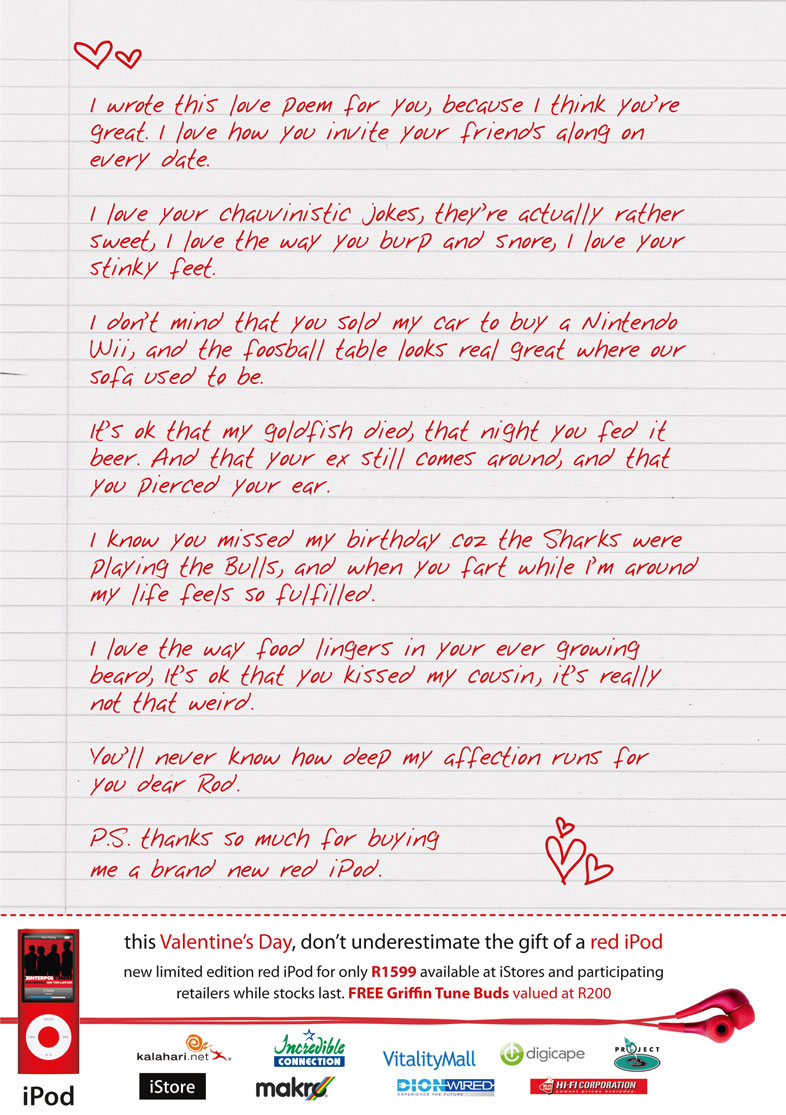 I wrote this love poem for you, because I think you're
great. I love how you invite your friends along on
every date.
I love your chauvinistic jokes, they're actually rather
sweet, I love the way you burp and snore, I love your
stinky feet.
I don't mind that you sold my car to buy a Nintendo
Wii, and the foosball table looks real great where our
sofa used to be.
It's ok that my goldfish died, that night you fed it
beer. And that your ex still comes around, and that
you pierced your ear.
I know you missed my birthday coz the Sharks were
playing the Bulls, and when you fart while I'm around
my life feels so fulfilled.
I love the way food lingers in your ever growing
beard, It's ok that you kissed my cousin, it's really
not that weird.
You'll never know how deep my affection runs for
you dear Rod.
P.S. thanks so much for buying
me a brand new red iPod.
this Valentine's Day, don't underestimate the gift of a red iPod
new limited edition red iPod for only R1599 available at iStores and participating
retailers while stocks last. FREE Griffin Tune Buds valued at R200
INTERPOL
MENU
iPod
kalahari.net
Incredible
CONNECTION
VitalityMall
digicape
PROJECT
iStore
makro
DION WIRED
EXPERIENCE THE FUTURE
HI-FI CORPORATION
Lowest prices everyday.